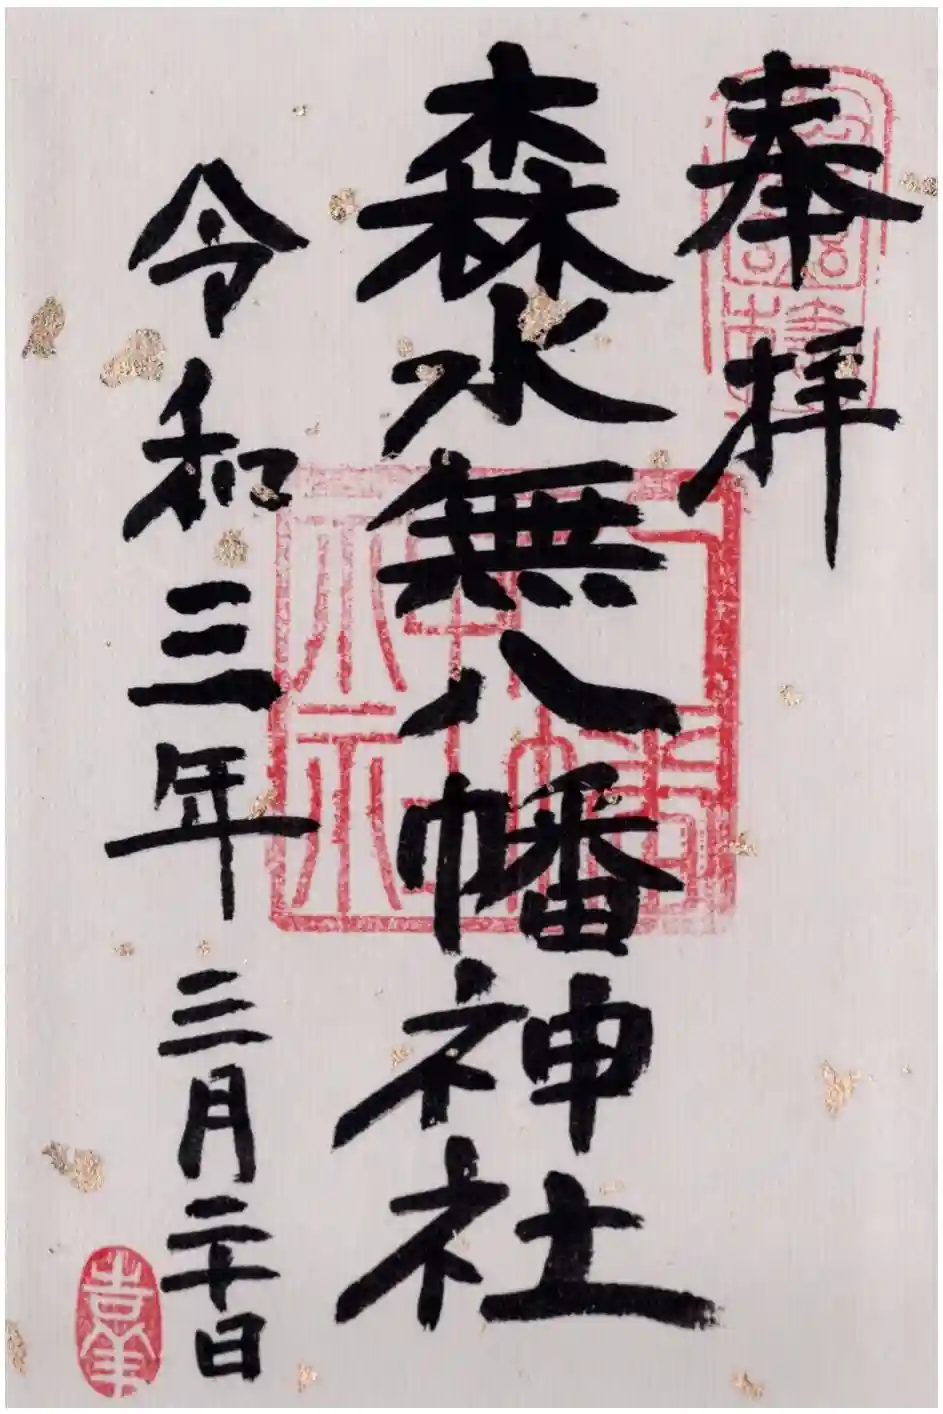 奉拝
森水無八幡神社
令和三年三月二十日
八幡神社